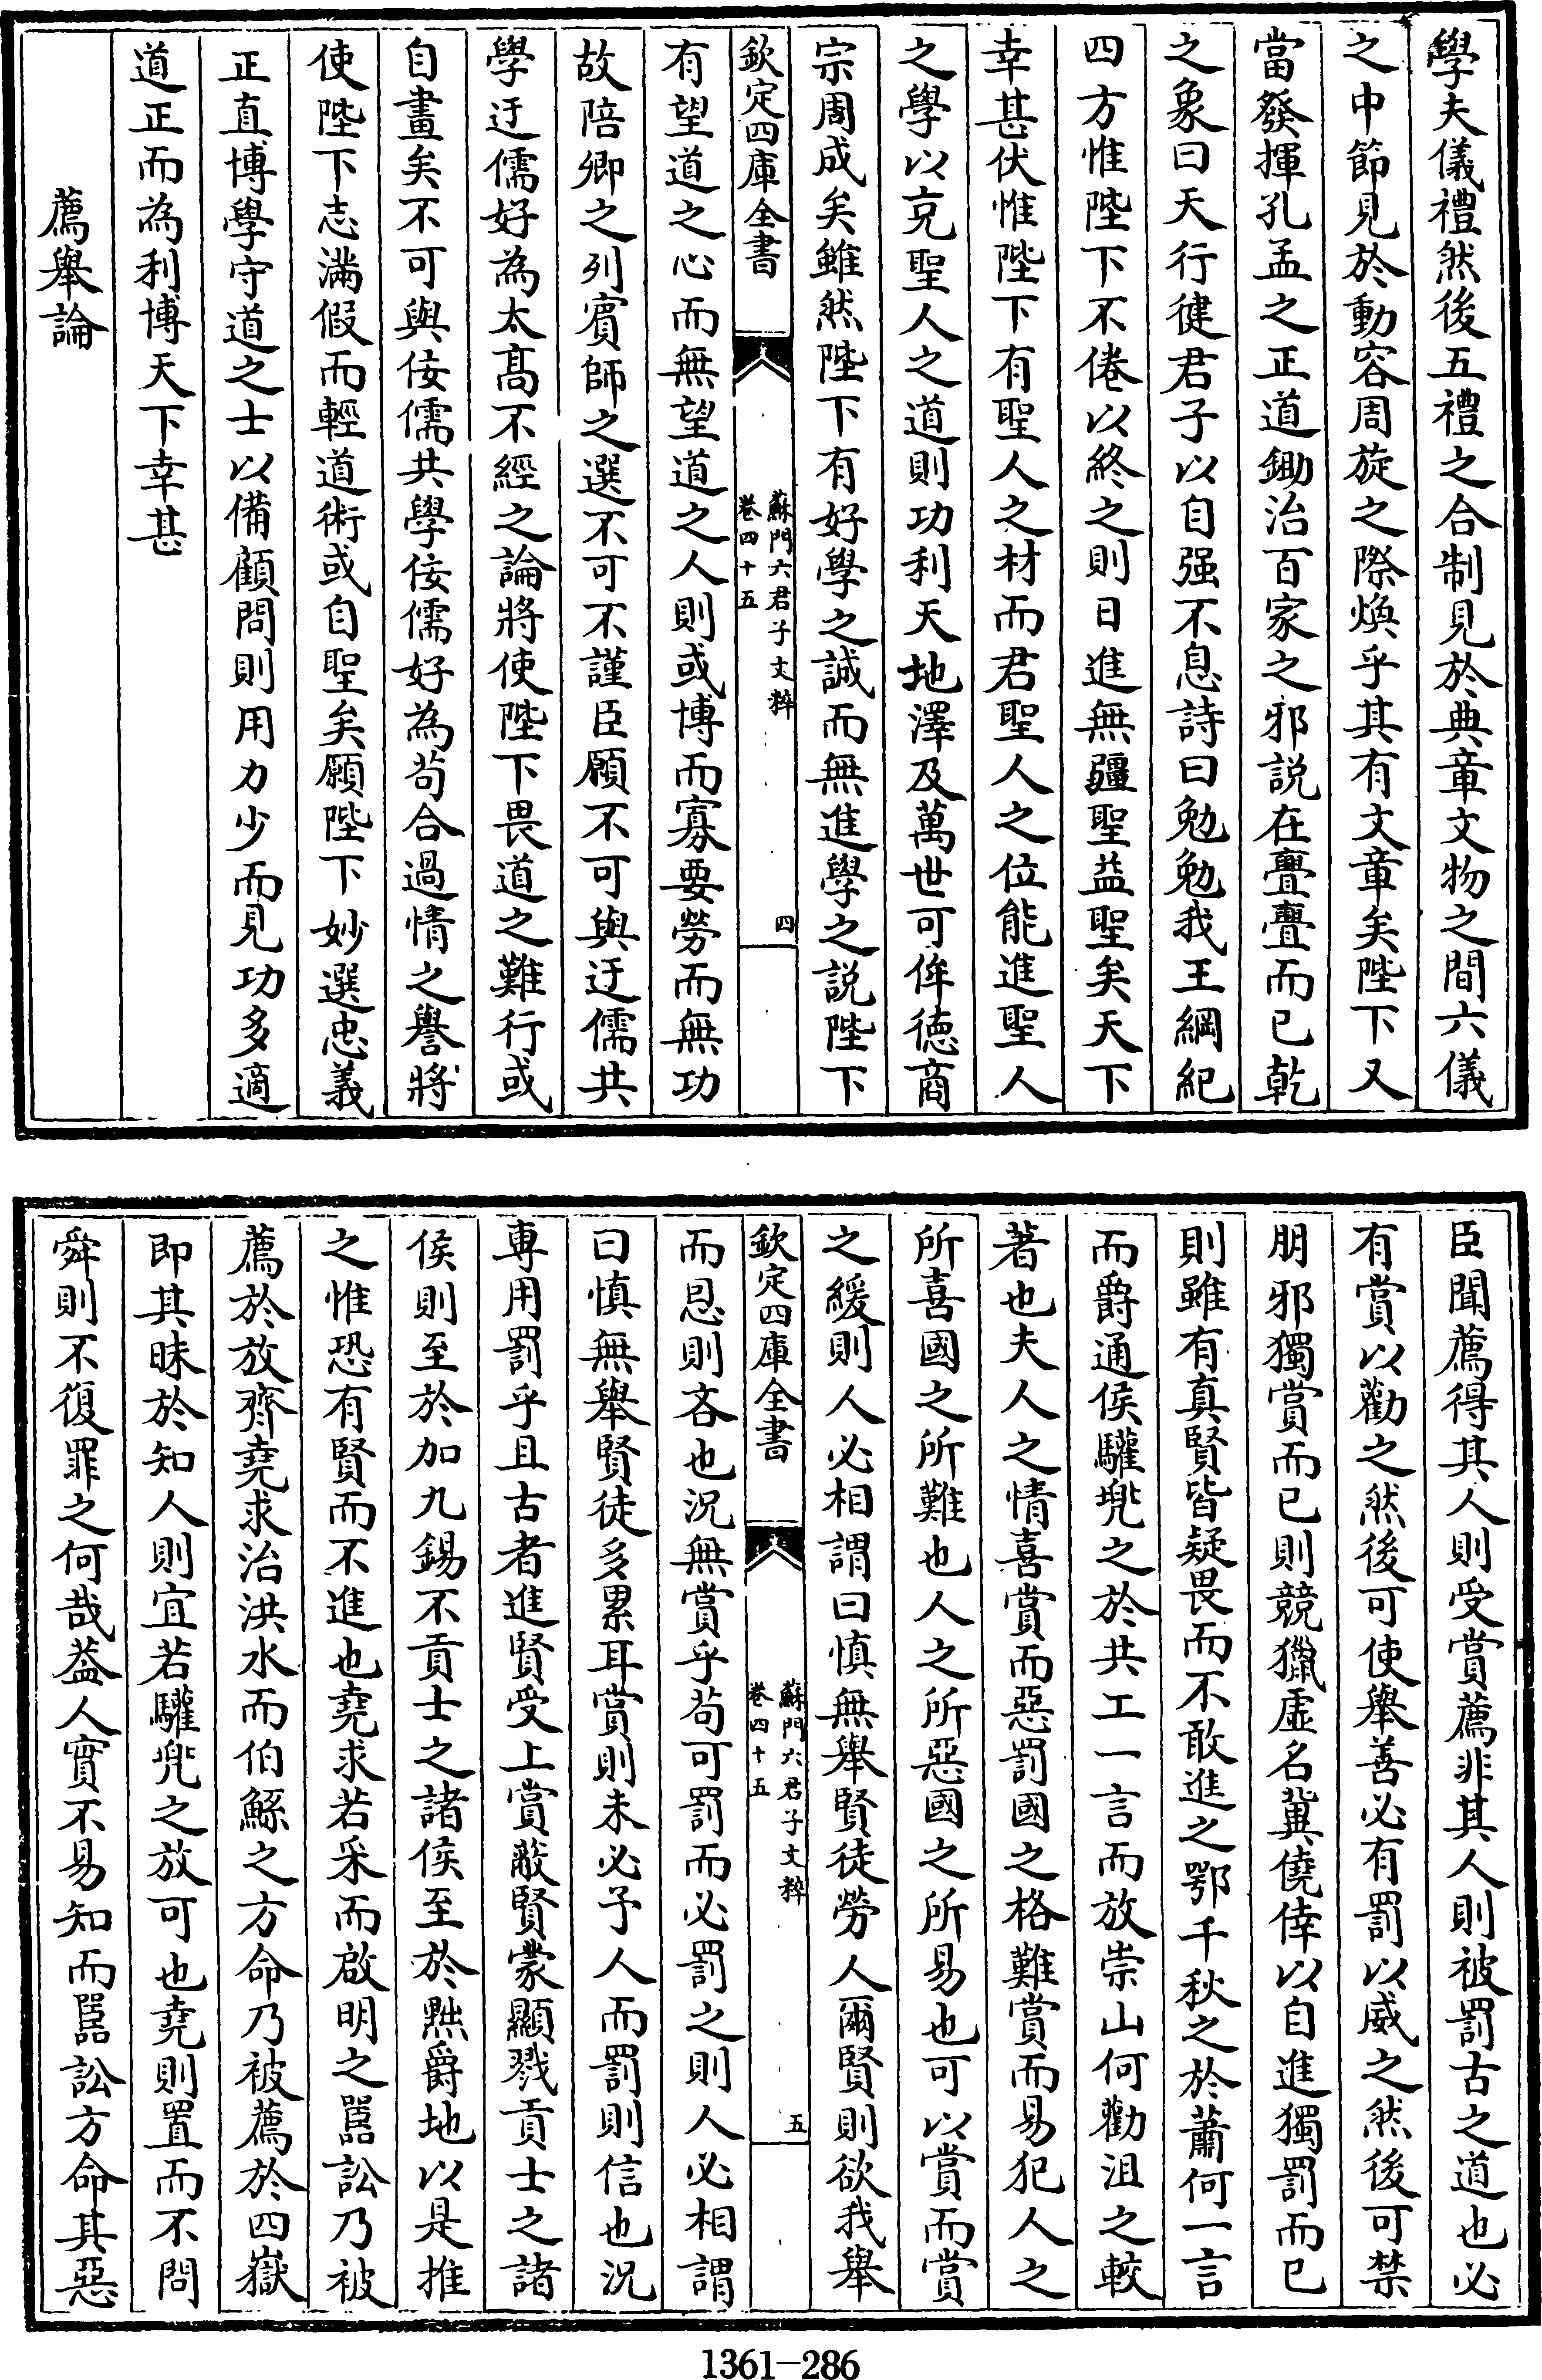 學夫儀禮然後五禮之合制見於典章文物之間六儀
之中節見於動容周旋之際煥乎其有文章矣陛下又
當發揮孔孟之正道鋤治百家之邪說在亹亹而已乾
之象曰天行健君子以自强不息詩曰勉勉我王綱紀
四方惟陛下不倦以終之則日進無疆聖益聖矣天下
幸甚伏惟陛下有聖人之材而君聖人之位能進聖人
之學以克聖人之道則功利天地澤及萬世可侔徳商
宗周成矣雖然陛下有好學之誠而無進學之説陛下
欽定四庫全書
蘇門六君子文粹
卷四十五
四
有望道之心而無望道之人則或博而寡要勞而無功
故陪卿之列賓師之選不可不謹臣願不可與迂儒共
學迂儒好為太髙不經之論將使陛下畏道之難行或
自畫矣不可與佞儒共學佞儒好為茍合過情之譽將
使陛下志滿假而輕道術或自聖矣願陛下妙選忠義
正直博學守道之士以備顧問則用力少而見功多適
道正而為利博天下幸甚
薦舉論
臣聞薦得其人則受賞薦非其人則被罰古之道也必
有賞以勸之然後可使舉善必有罰以威之然後可禁
朋邪獨賞而已則競獵虛名冀僥倖以自進獨罰而已
則雖有真賢皆疑畏而不敢進之鄂千秋之於蕭何一言
而爵通侯驩兠之於共工一言而放崇山何勸沮之較
著也夫人之情喜賞而惡罰國之格難賞而易犯人之
所喜國之所難也人之所惡國之所易也可以賞而賞
之緩則人必相謂曰慎無舉賢徒勞人爾賢則欲我舉
欽定四庫全書
蘇門六君子文粹
卷四十五
五
而恩則吝也況無賞乎茍可罰而必罰之則人必相謂
曰慎無舉賢徒多累耳賞則未必予人而罰則信也況
専用罰乎且古者進賢受上賞蔽賢蒙顯戮貢士之諸
侯則至於加九錫不貢士之諸侯至於黜爵地以是推
之惟恐有賢而不進也堯求若采而啟明之嚚訟乃被
薦於放齊堯求治洪水而伯鯀之方命乃被薦於四嶽
即其昧於知人則宜若驩兠之放可也堯則置而不問
舜則不復罪之何哉葢人實不易知而嚚訟方命其惡
1361—286